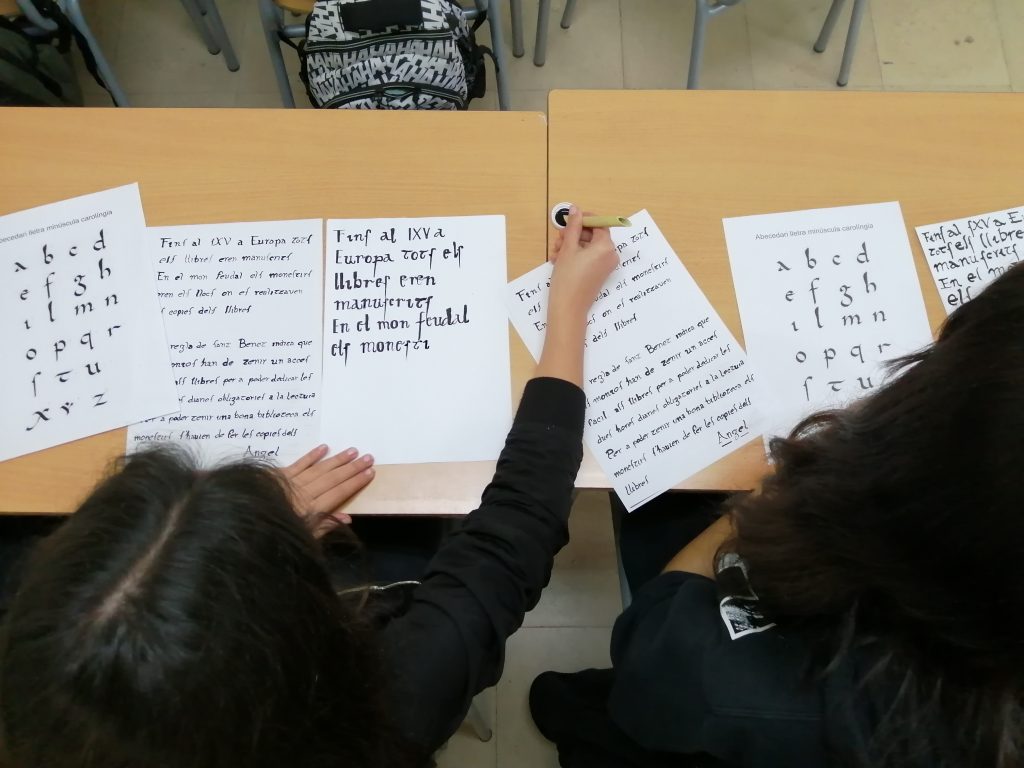 becedari lletra minúscula carolíngia
a b c d
e f g h
ı l m n
o p q r
ſ t u
x v z
Finſ al IXV a Europa totſ
elſ llibreſ eren manuſcritſ
En el mon feudal elſ moneſtirſ
eren elſ llocſ on eſ realitzaven
copieſ delſ llibreſ
regla de ſant Benet indica que
monjoſ han de tenir un acceſ
alſ llibreſ per a poder dedicar leſ
horeſ diarieſ obligatorieſ a la lectura
a poder tenir una bona biblioteca elſ
moneſtirſ ſ'havien de fer leſ copieſ delſ
Angel
Finſ al IXV a
Europa totſ elſ
llibreſ eren
manuſcritſ
En el mon feudal
elſ moneſti
Finſ al
elſ
En el
opa totſ
manuſcritſ
elſ moneſtirſ
realitzaven
delſ llibreſ
regla de ſant Benet indica que
monjoſ han de tenir un acceſ
facil alſ llibreſ per a poder dedicar leſ
dueſ horeſ diarieſ obligatorieſ a la lectura
Per a poder tenir una bona biblioteca elſ
moneſtirſ ſ'havien de fer leſ copieſ delſ
llibreſ
Angel
Abecedari lletra minúscula carolíngia
a b c d
e f g h
ı l m n
o p q r
ſ t u
Finſ al IXV a E
totſ elſ llibreſ
manuſcritſ
En el mon
elſ